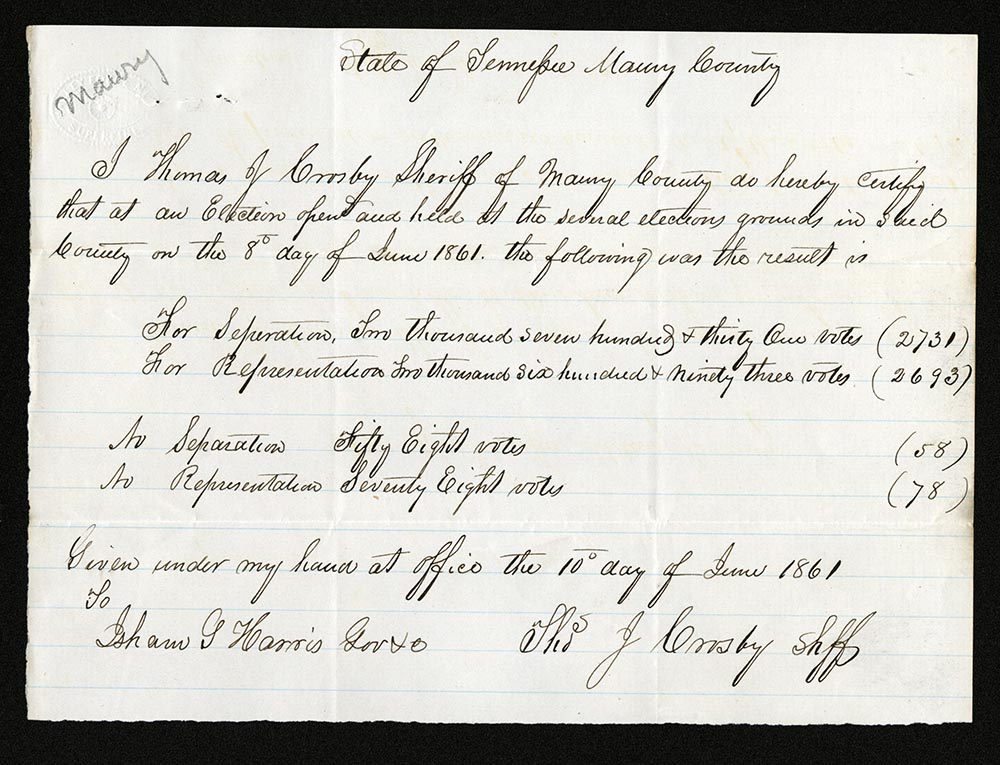 Maury
State of Tennessee Maury County
I Thomas J Crosby Sheriff of Maury County do hereby certify
that at an Election opend and held at the several elections grounds in said
County on the 8th day of June 1861. the following was the result is
For Seperation, Two thousand seven hundred & thirty One votes (2731)
For Representation Two thousand six hundred & ninety three votes (2693)
No Separation Fifty Eight votes (58)
No Representation Seventy Eight votes (78)
Given under my hand at office the 10th day of June 1861
To
Isham G Harris Gov &c Thos J Crosby Shff